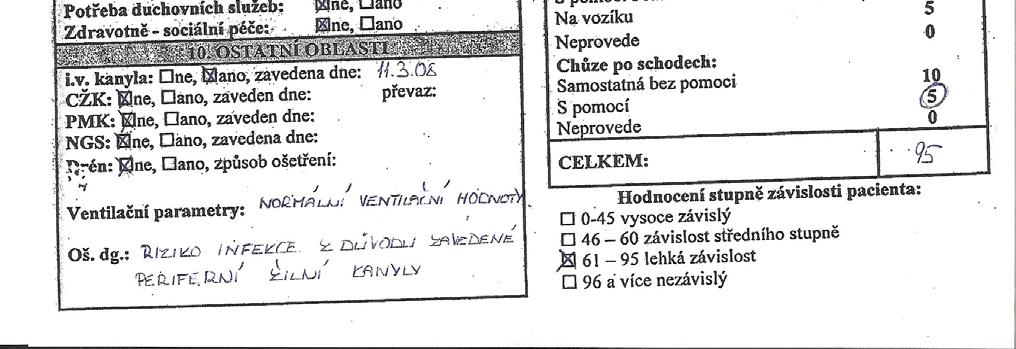 Potřeba duchovních služeb: ☒ne, ☐ano
Zdravotně - sociální péče: ☒ne, ☐ano
10. OSTATNÍ OBLASTI
i.v. kanyla: ☐ne, ☒ano, zavedena dne: 11.3.08
CŽK: ☒ne, ☐ano, zaveden dne: převaz:
PMK: ☒ne, ☐ano, zaveden dne:
NGS: ☒ne, ☐ano, zavedena dne:
Drén: ☒ne, ☐ano, způsob ošetření:
Ventilační parametry: NORMÁLNÍ VENTILAČNÍ HODNOTY
Oš. dg.: RIZIKO INFEKCE Z DŮVODU ZAVEDENÉ
PERIFERNÍ ŽILNÍ KANYLY
5
Na vozíku 0
Neprovede
Chůze po schodech:
Samostatná bez pomoci 10
S pomocí 5
Neprovede 0
CELKEM: 95
Hodnocení stupně závislosti pacienta:
☐ 0-45 vysoce závislý
☐ 46 – 60 závislost středního stupně
☒ 61 – 95 lehká závislost
☐ 96 a více nezávislý